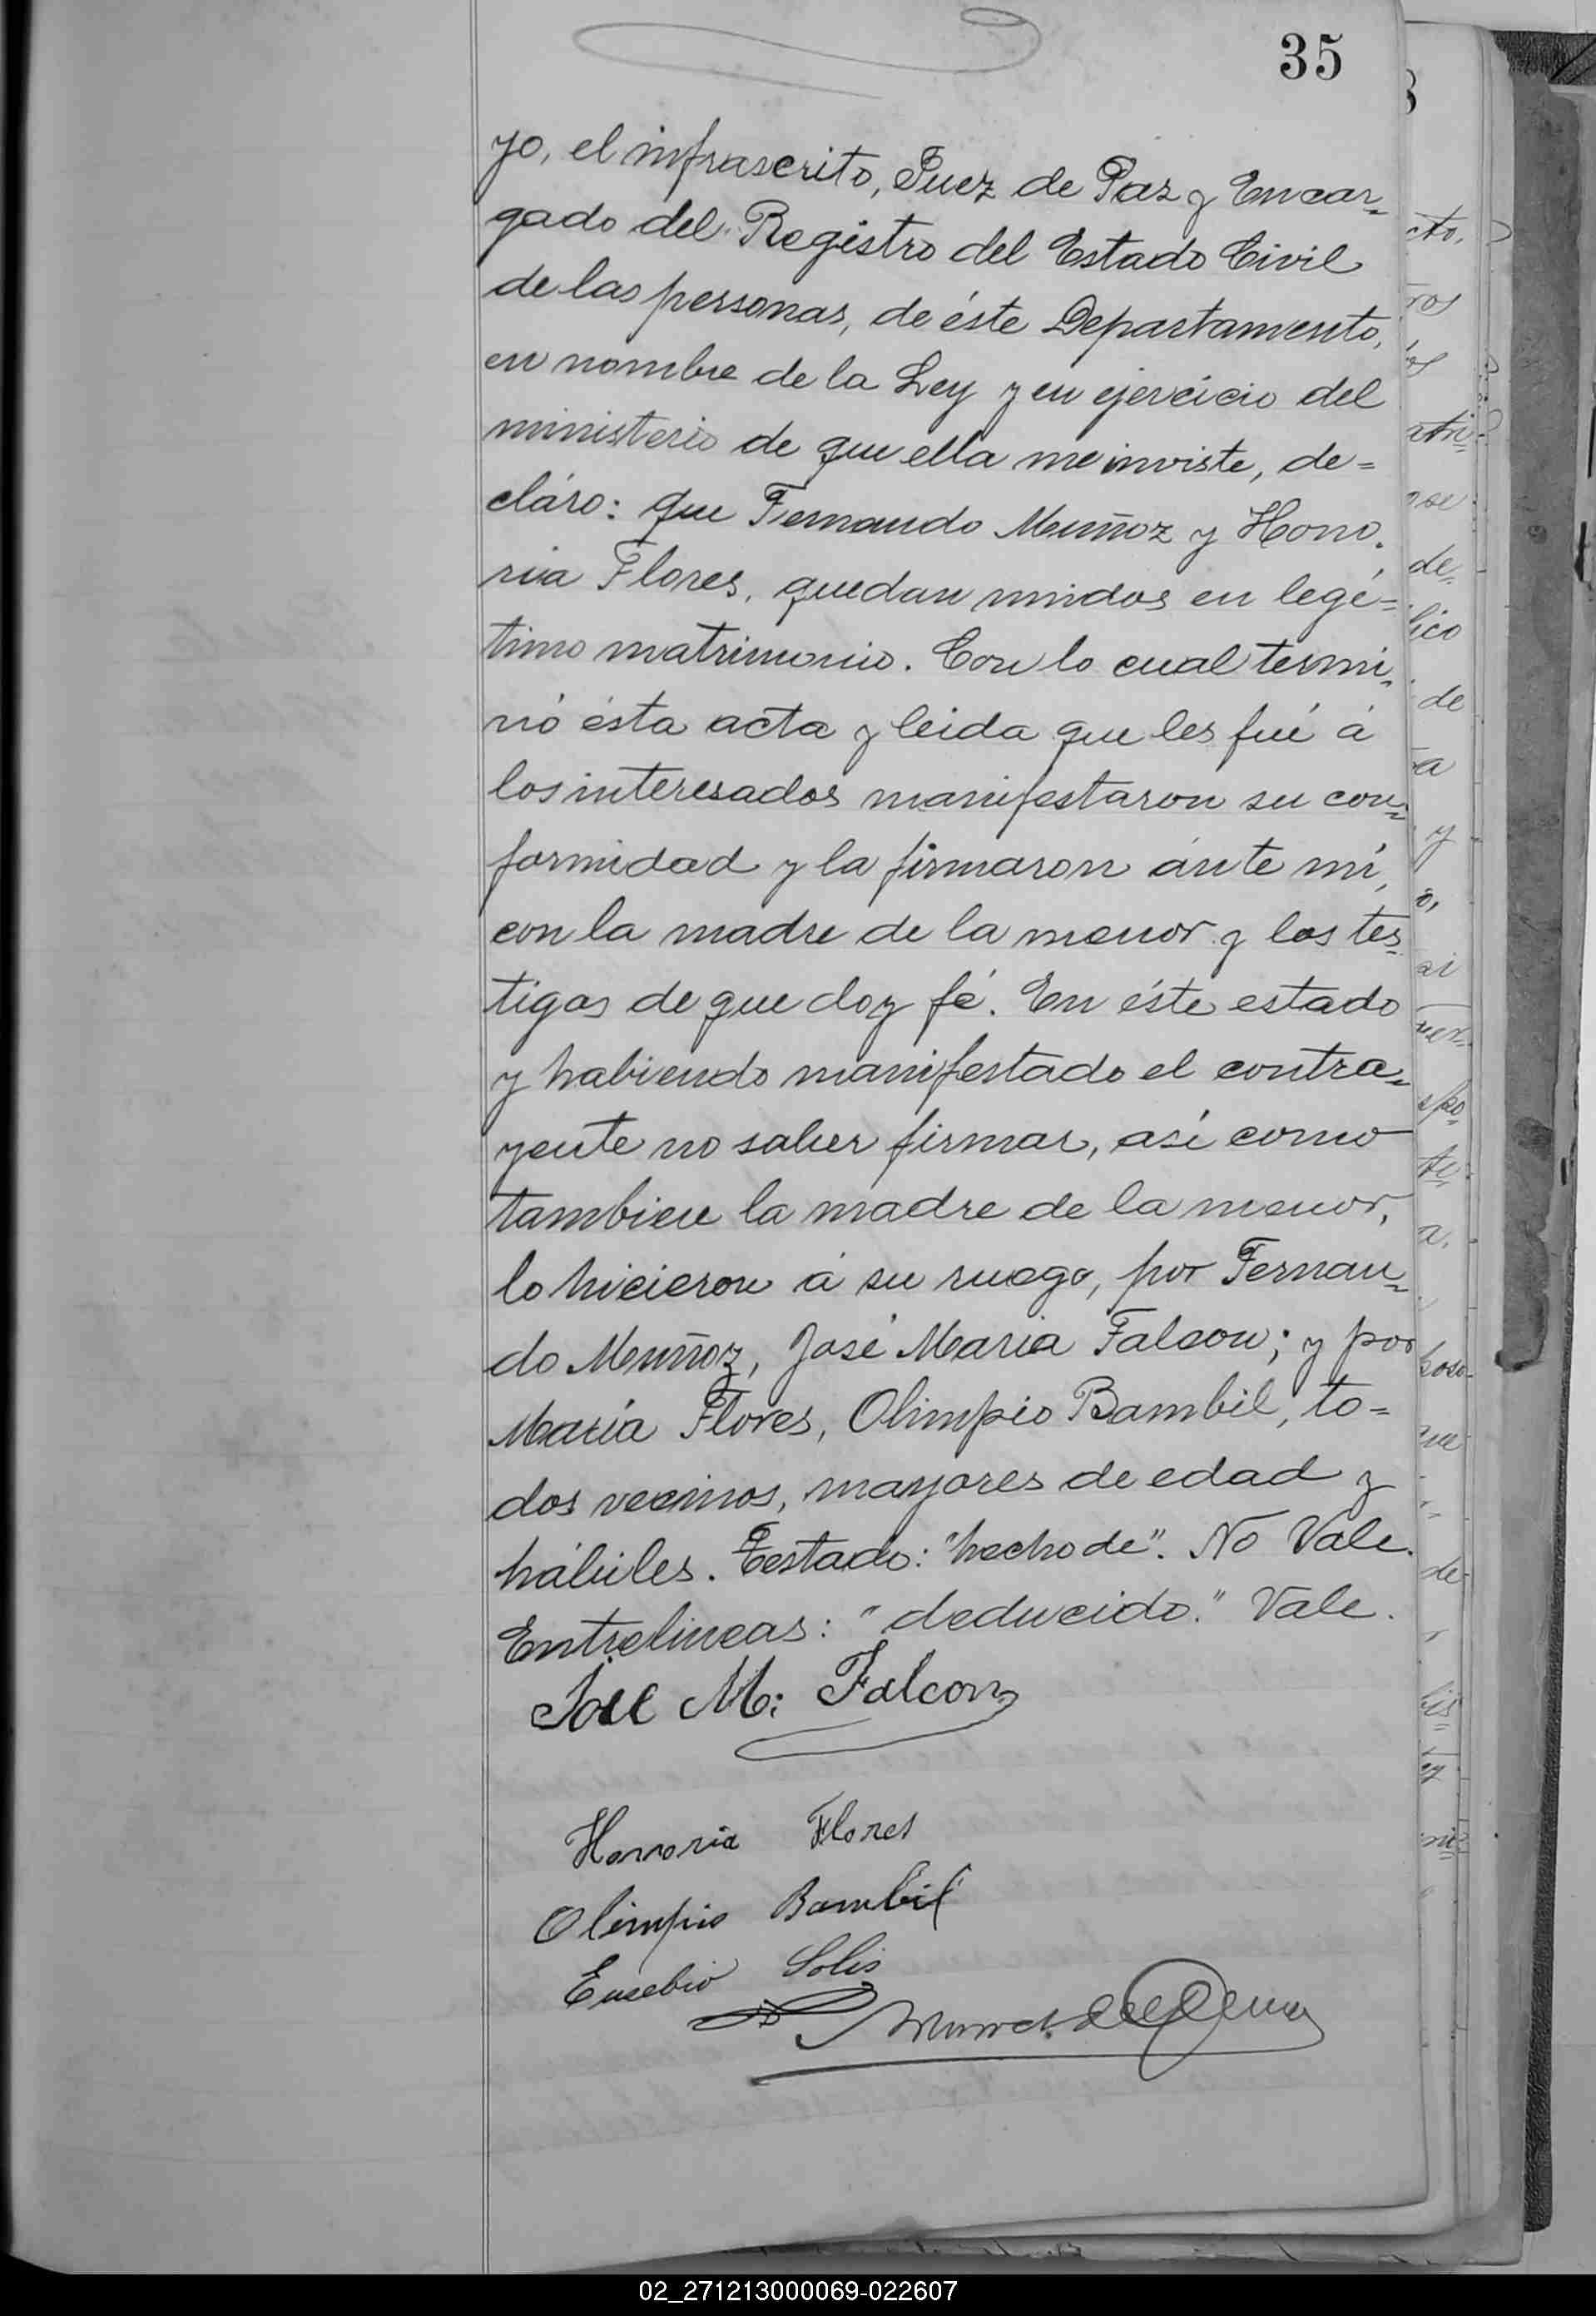 35
yo, el infrascrito, Juez de Paz y Encar=
gado del Registro del Estado Civil
de las personas, de éste Departamento,
en nombre de la Ley y en ejercicio del
ministerio de que ella me inviste, de=
cláro: que Fernando Muñoz y Hono=
ria Flores, quedan unidos en legí=
timo matrimonio. Con lo cual termi=
nó ésta acta y leida que les fué á
los interesados manifestaron su con=
formidad y la firmaron ánte mí,
con la madre de la menor y los tes=
tigos de que doy fé. En éste estado
y habiendo manifestado el contra=
yente no saber firmar, así como
tambien la madre de la menor,
lo hicieron á su ruego, por Fernan=
do Muñoz, José Maria Falcon; y por
María Flores, Olimpio Bambil, to=
dos vecinos, mayores de edad y
hábiles. Testado: "hecho de". No Vale.
Entrelineas: "deducido." Vale.
José M: Falcon
Honoria Flores
Olimpio Bambil
Eusebio Solis
02_271213000069-022607